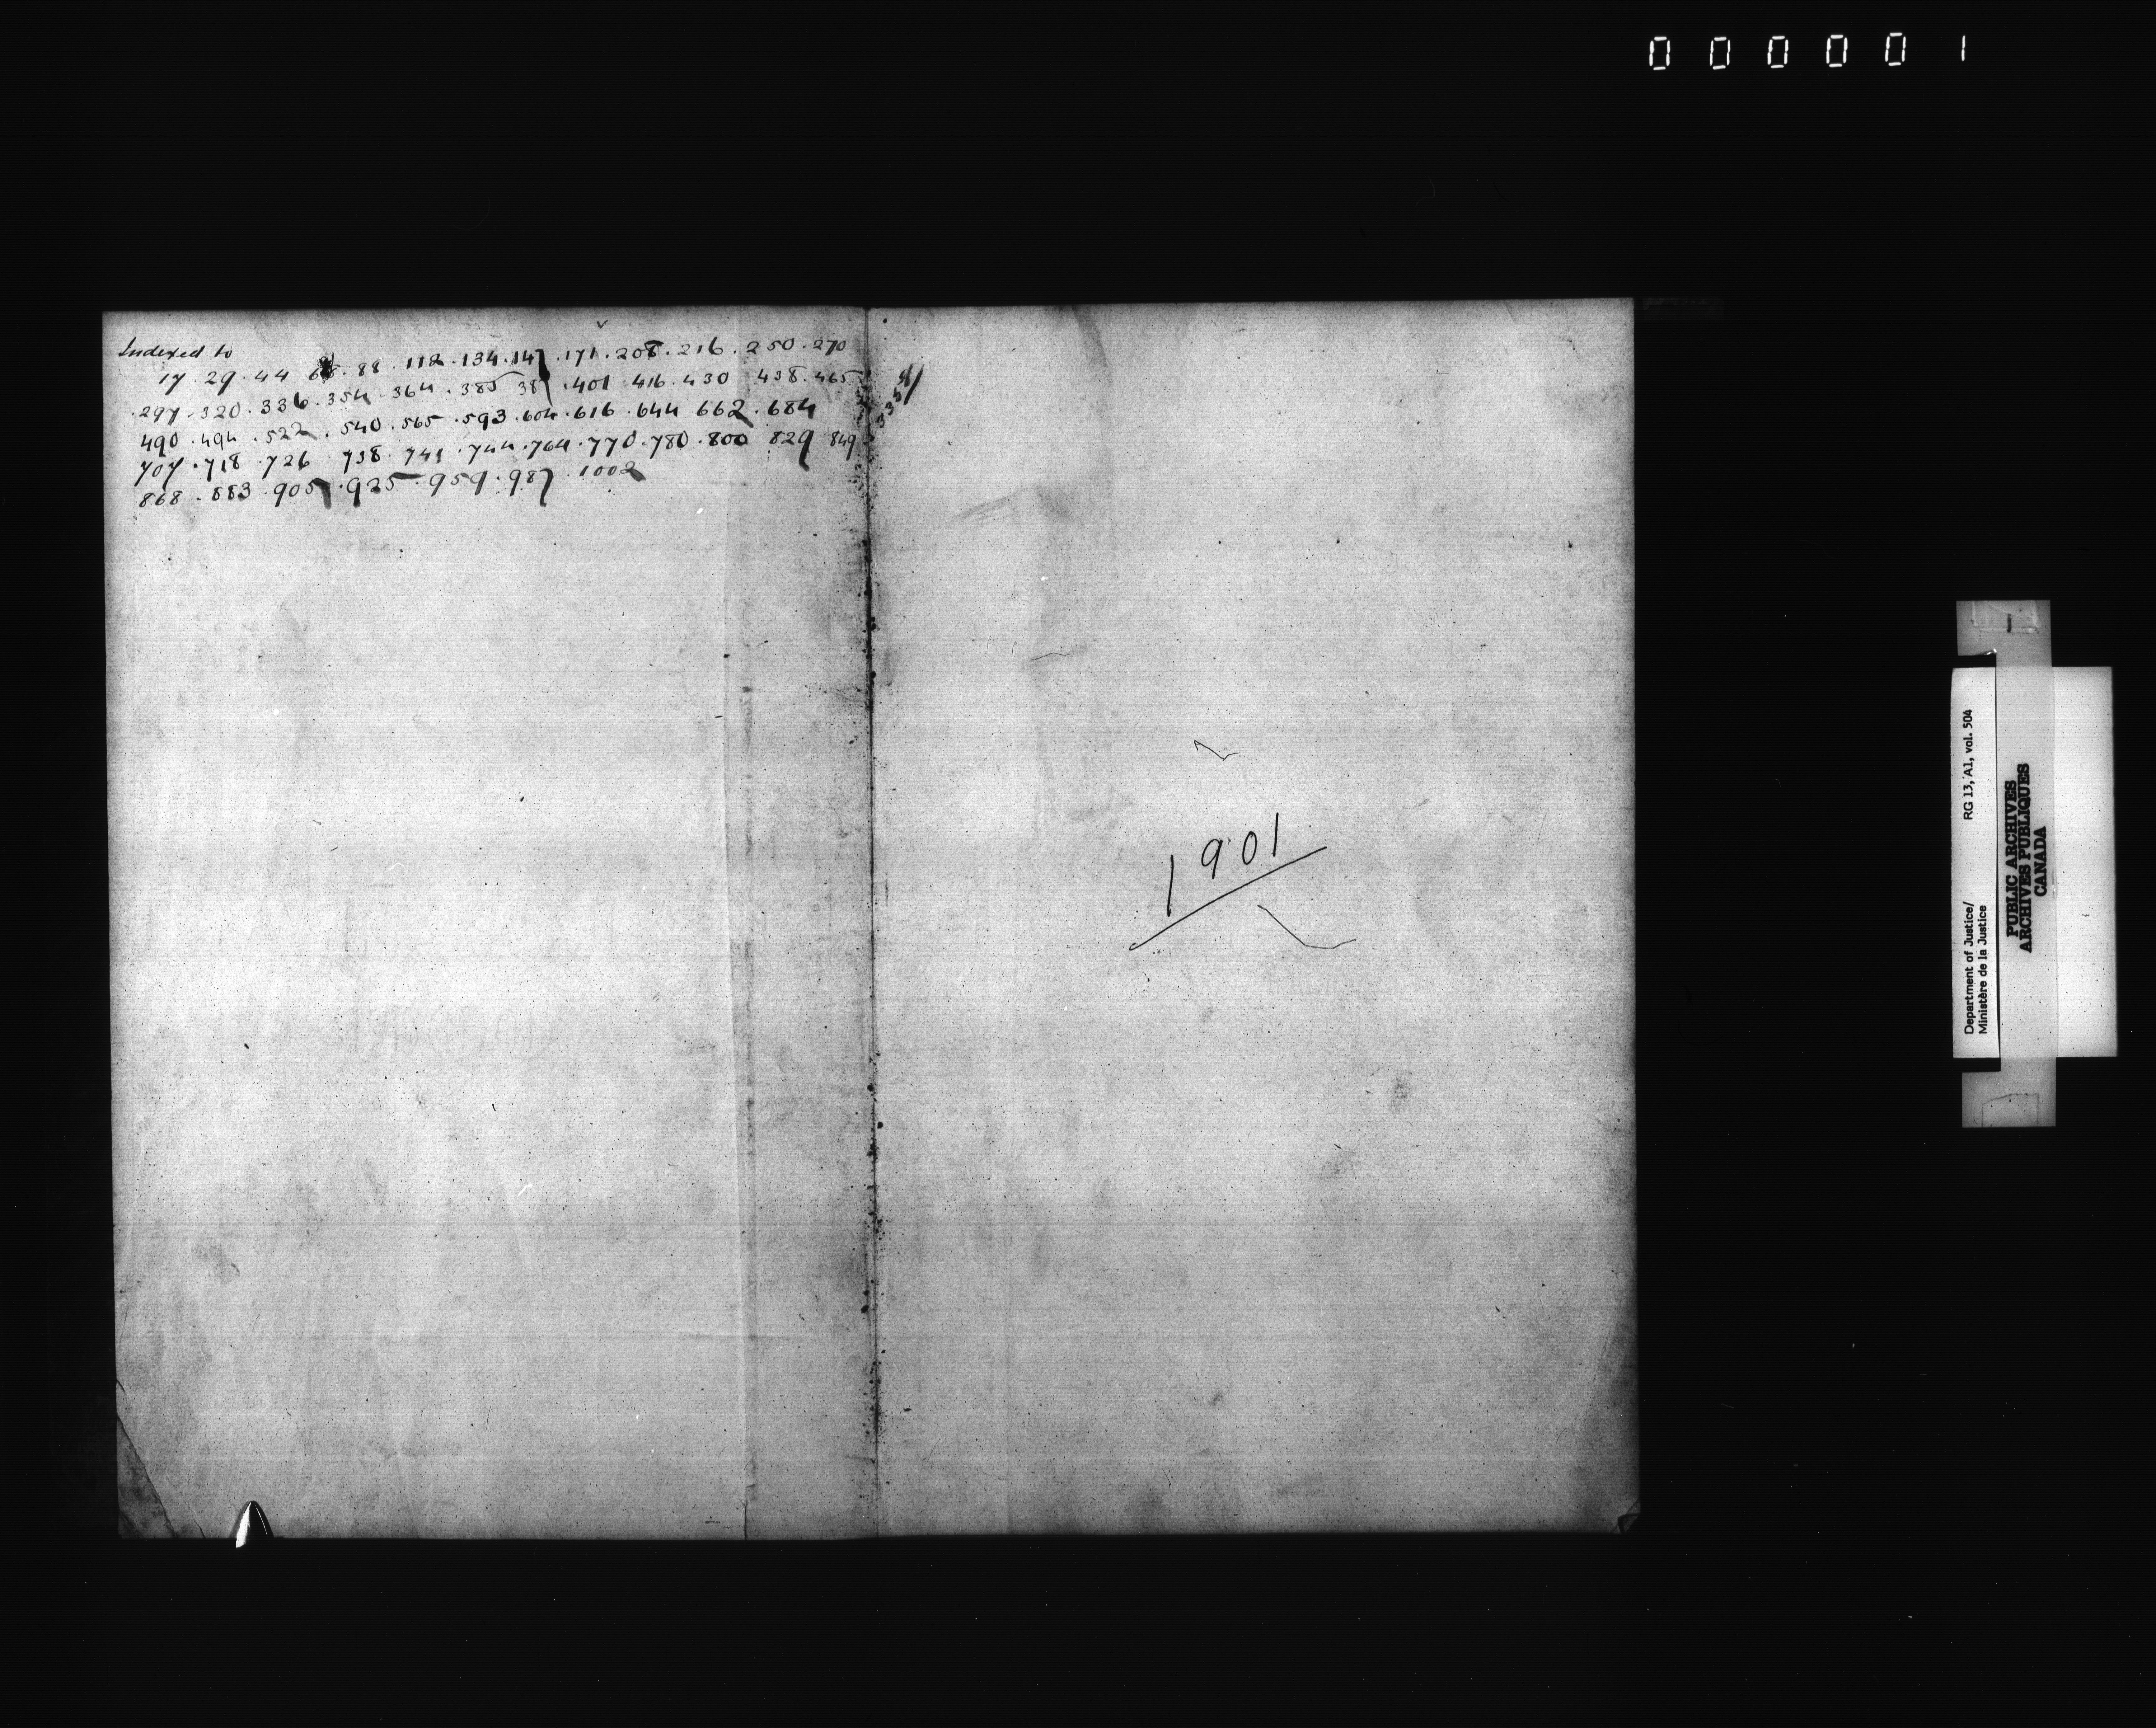 000001
Indexed to
17 . 29 . 44 68 . 88 . 112 . 134 . 147 . 171 . 208 . 216 . 250 . 270
. 297 . 320 . 336 . 354 . 364 . 385 387 . 401 416 . 430 438 . 465
490 . 494 . 522 . 540 . 565 . 593 . 604 . 616 . 644 662 . 684
707 . 718 . 726 738 . 741 . 744 . 764 . 770 . 780 . 800 829 849
868 . 883 . 905 . 925 . 959 . 987 . 1002
1901
Department of Justice/ RG 13, A1, vol. 504
Ministère de la Justice
PUBLIC ARCHIVES
ARCHIVES PUBLIQUES
CANADA